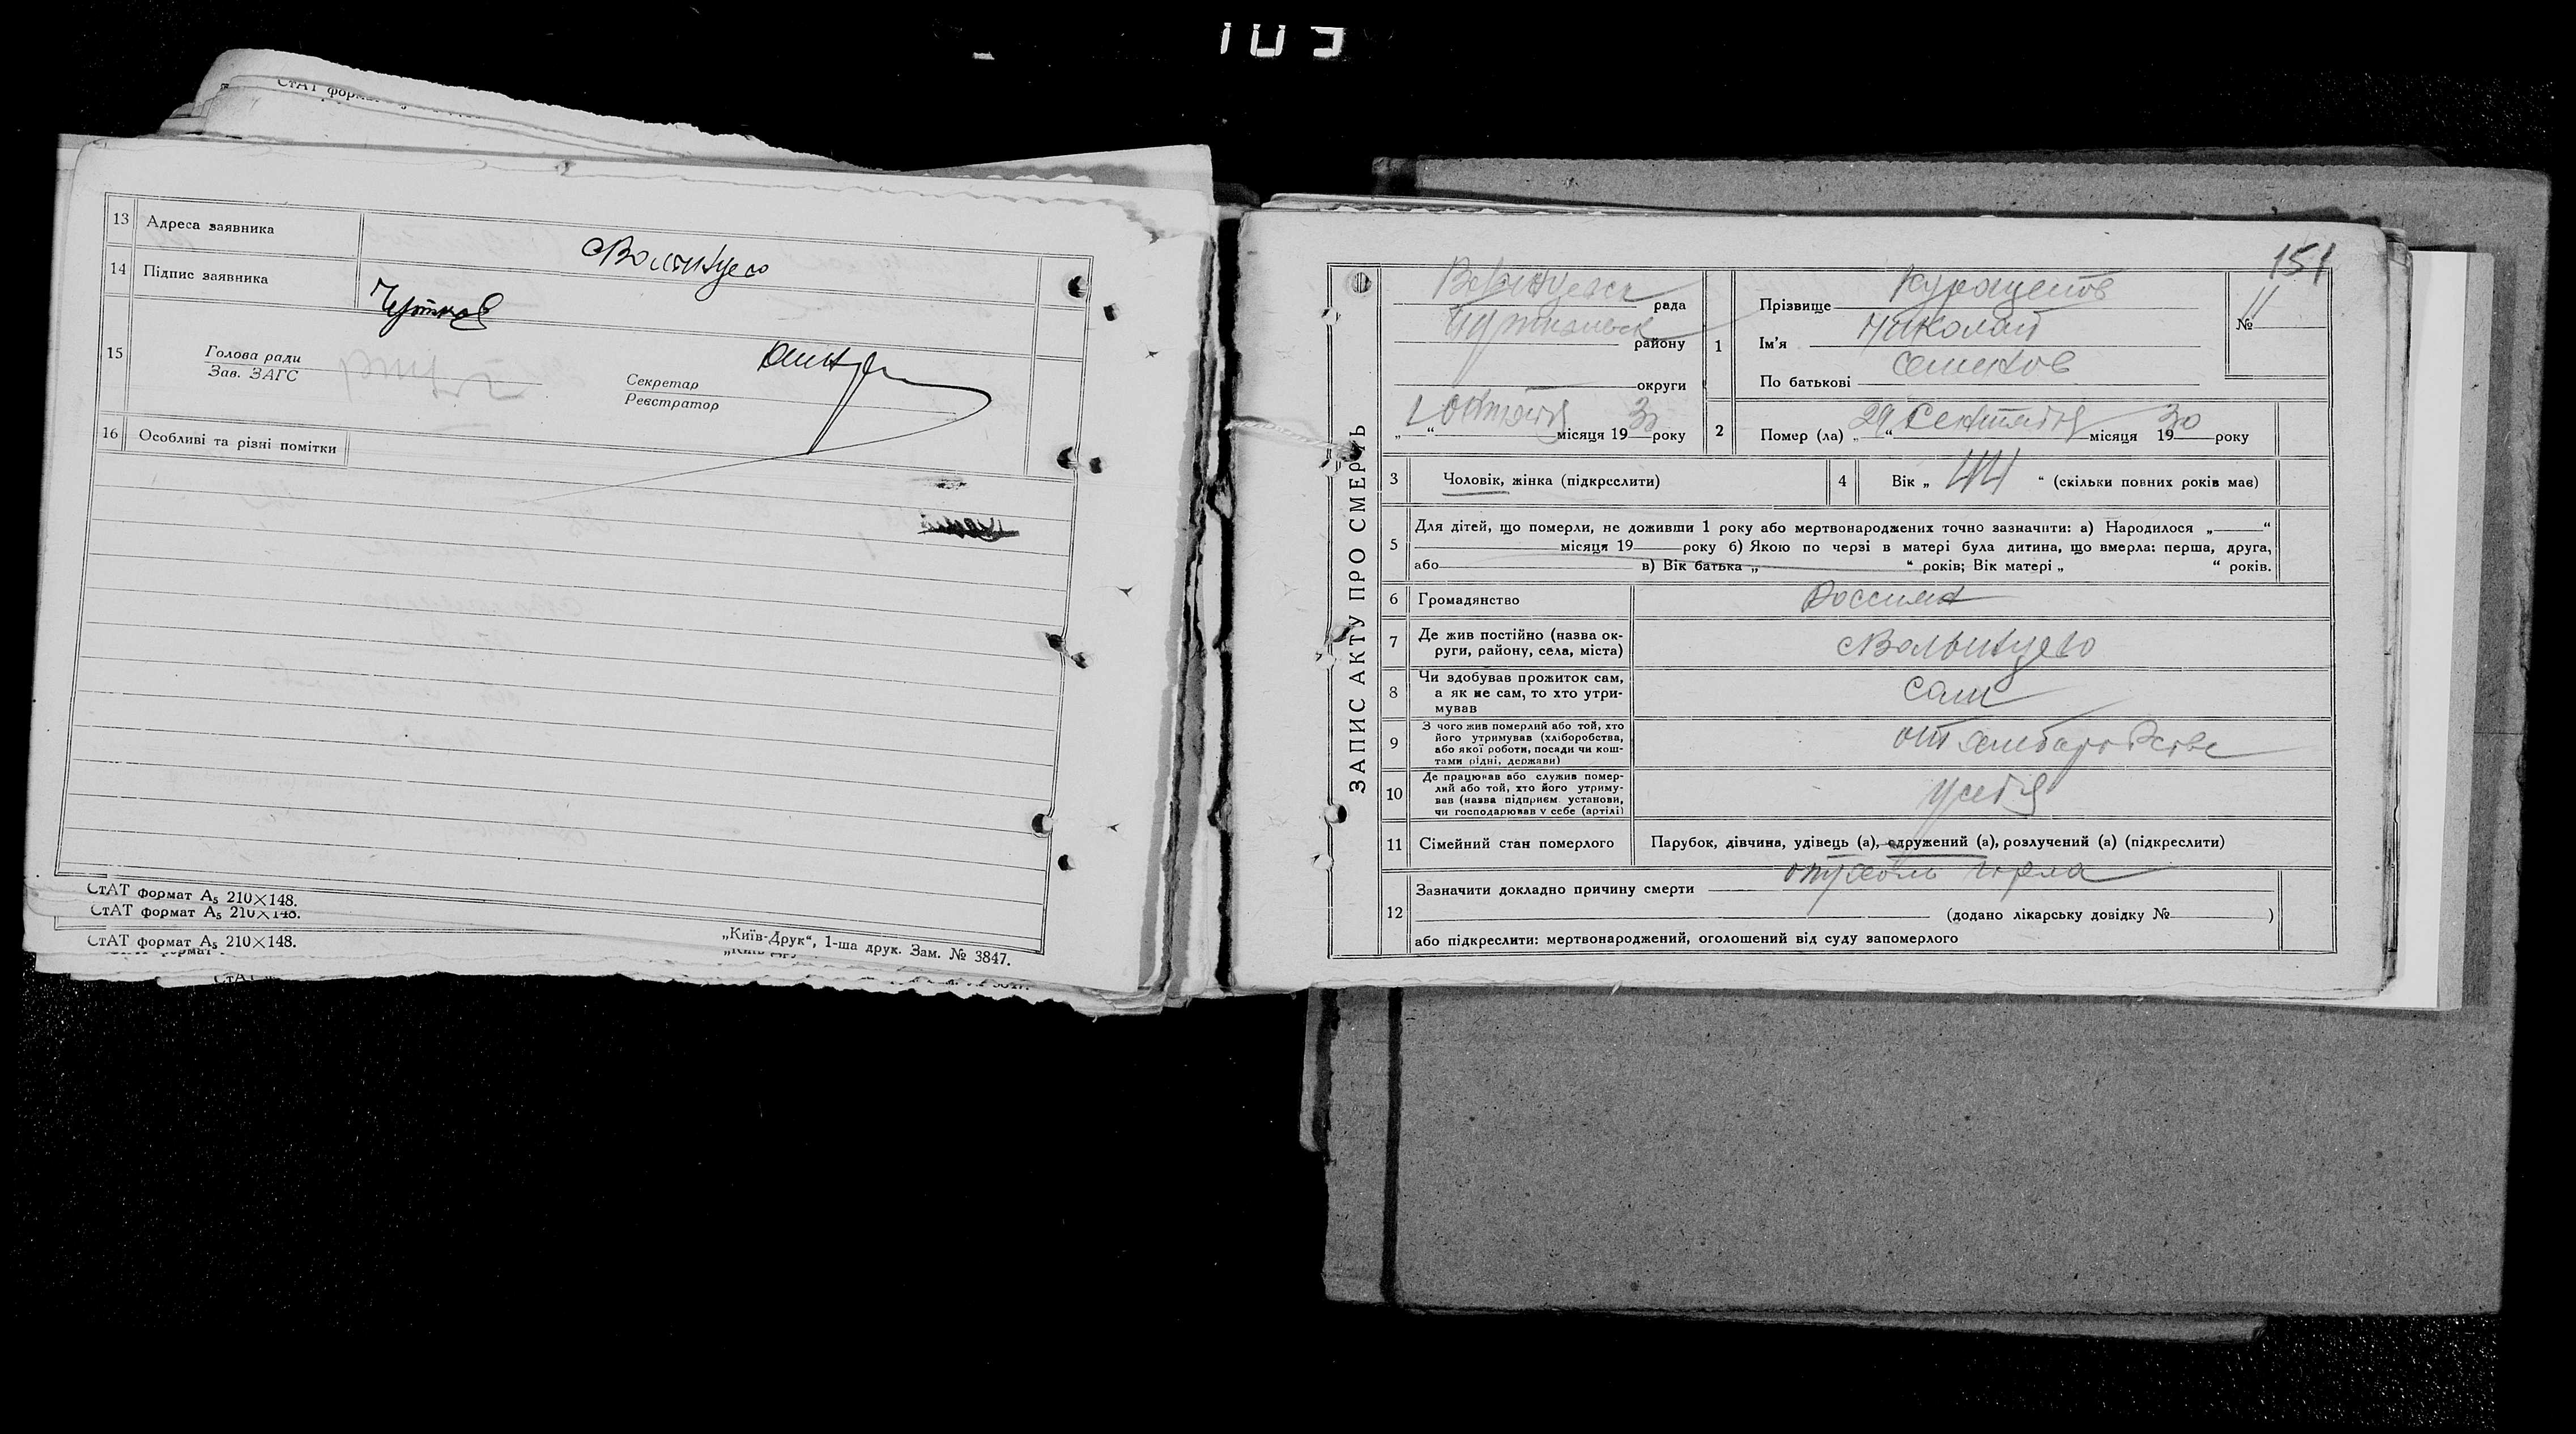 СтАТ форм
13 Адреса заявника
14 Підпис заявника
15 Голова ради
Зав. ЗАГС
Секретар
Реєстратор
16 Особливі та різні помітки
СтАТ формат А₅ 210×148.
СтАТ формат А₅ 210×148.
СтАТ формат А₅ 210×148.
„Київ-Друк“, 1-ша друк. Зам. № 3847.
151
ЗАПИС АКТУ ПРО СМЕРТЬ
рада
району
округи
„1“ октября місяця 1930 року
1 Прізвище
Ім'я Николай
По батькові Семенов
№ 11
2 Помер (ла) „29“ Сентября місяця 1930 року
3 Чоловік, жінка (підкреслити)
4 Вік „44“ (скільки повних років має)
5 Для дітей, що померли, не доживши 1 року або мертвонароджених точно зазначити: а) Народилося „ “
місяця 19 року б) Якою по черзі в матері була дитина, що вмерла: перша, друга,
або в) Вік батька „ “ років; Вік матері „ “ років.
6 Громадянство
7 Де жив постійно (назва ок-
руги, району, села, міста)
8 Чи здобував прожиток сам,
а як не сам, то хто утри-
мував
сам
9 З чого жив померлий або той, хто
його утримував (хліборобства,
або якої роботи, посади чи кош-
тами рідні, держави)
от
10 Де працював або служив помер-
лий або той, хто його утриму-
вав (назва підприєм. установи,
чи господарював у себе (артілі)
у себя
11 Сімейний стан померлого Парубок, дівчина, удівець (а), одружений (а), розлучений (а) (підкреслити)
12 Зазначити докладно причину смерти горла
(додано лікарську довідку № )
або підкреслити: мертвонароджений, оголошений від суду запомерлого